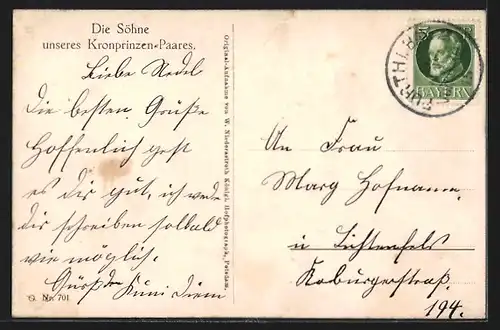 Die Söhne
unseres Kronprinzen-Paares.
Liebe
Die besten Grüße
Hoffentlich geht
es Dir gut, ich werde
dir schreiben sobald
wie möglich.
Kuni
G. Nr. 701
Original-Aufnahme von W. Niederastroth Königl. Hofphotograph, Potsdam.
5
BAYERN
FÜRTH
An Frau
Marg Hofmann
in Lichtenfels
Koburgerstraß.
194.